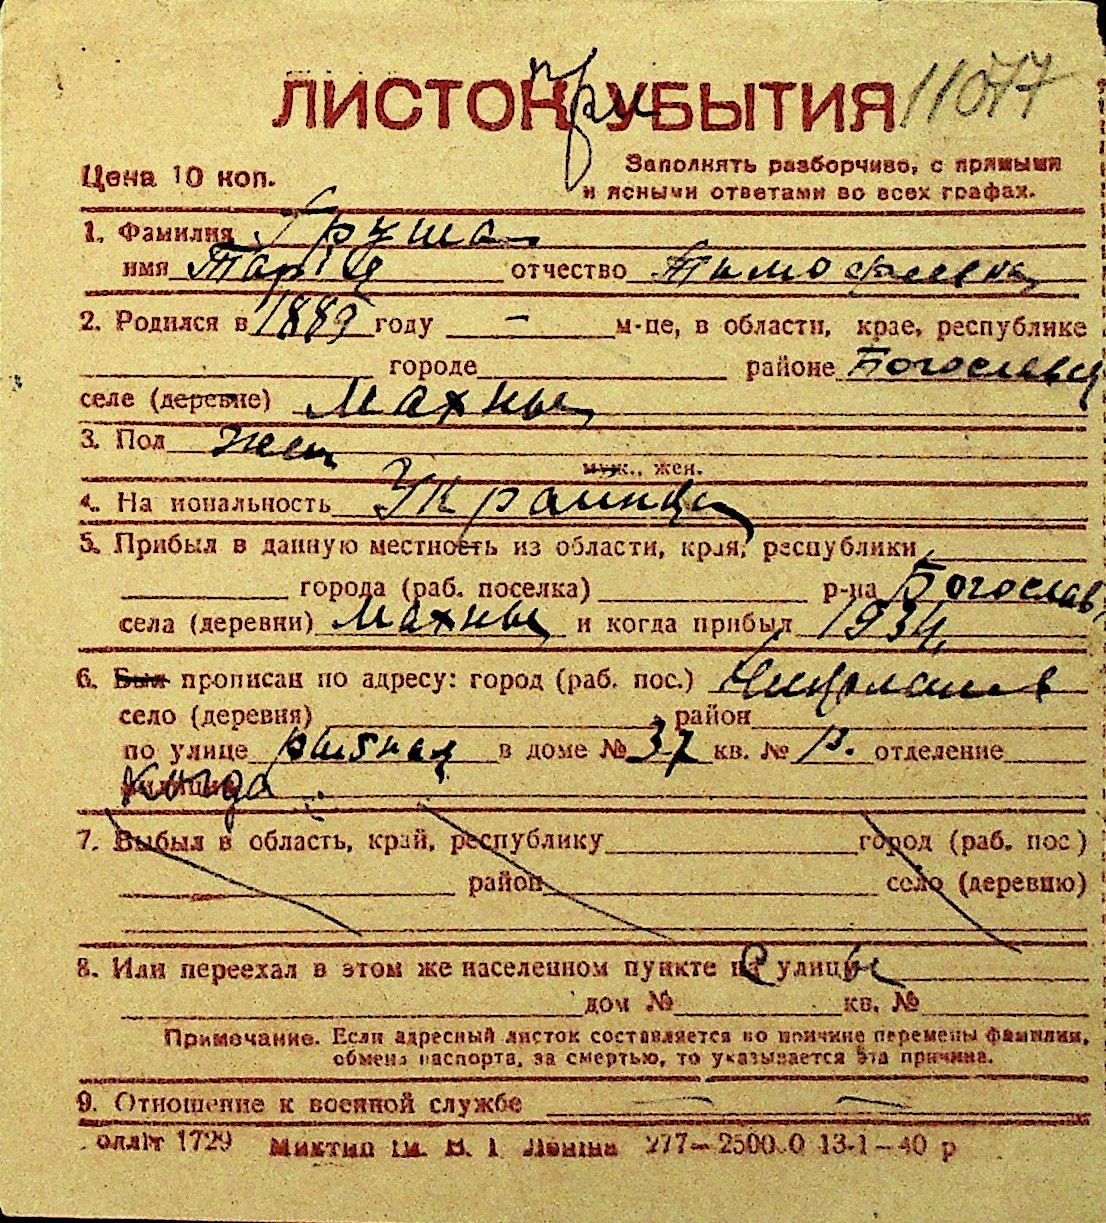 ЛИСТОК при УБЫТИЯ 11077
Цена 10 коп.
Заполнять разборчиво, с прямыми
и ясными ответами во всех графах.
1. Фамилия Груша
имя отчество Тимофеевна
2. Родился в 1889 году — м-це, в области, крае, республике
городе районе Богославец
селе (деревне) Махны
3. Пол жен
муж., жен.
4. На иональность Украинка
5. Прибыл в данную местность из области, края, республики
города (раб. поселка) р-на Богослав
села (деревни) Махны и когда прибыл 1934
6. Был прописан по адресу: город (раб. пос.) Николаев
село (деревня) район
по улице рыбная в доме № 37 кв. № р. отделение
7. Выбыл в область, край, республику город (раб. пос)
район село (деревню)
8. Или переехал в этом же населенном пункте на улицы
дом № кв. №
Примечание. Если адресный листок составляется по причине перемены фамилии,
обмена паспорта, за смертью, то указывается эта причина.
9. Отношение к военной службе — —
оллiт 1729 Миктип iм. В. I Ленiна 277—2500.0 13-1-40 р